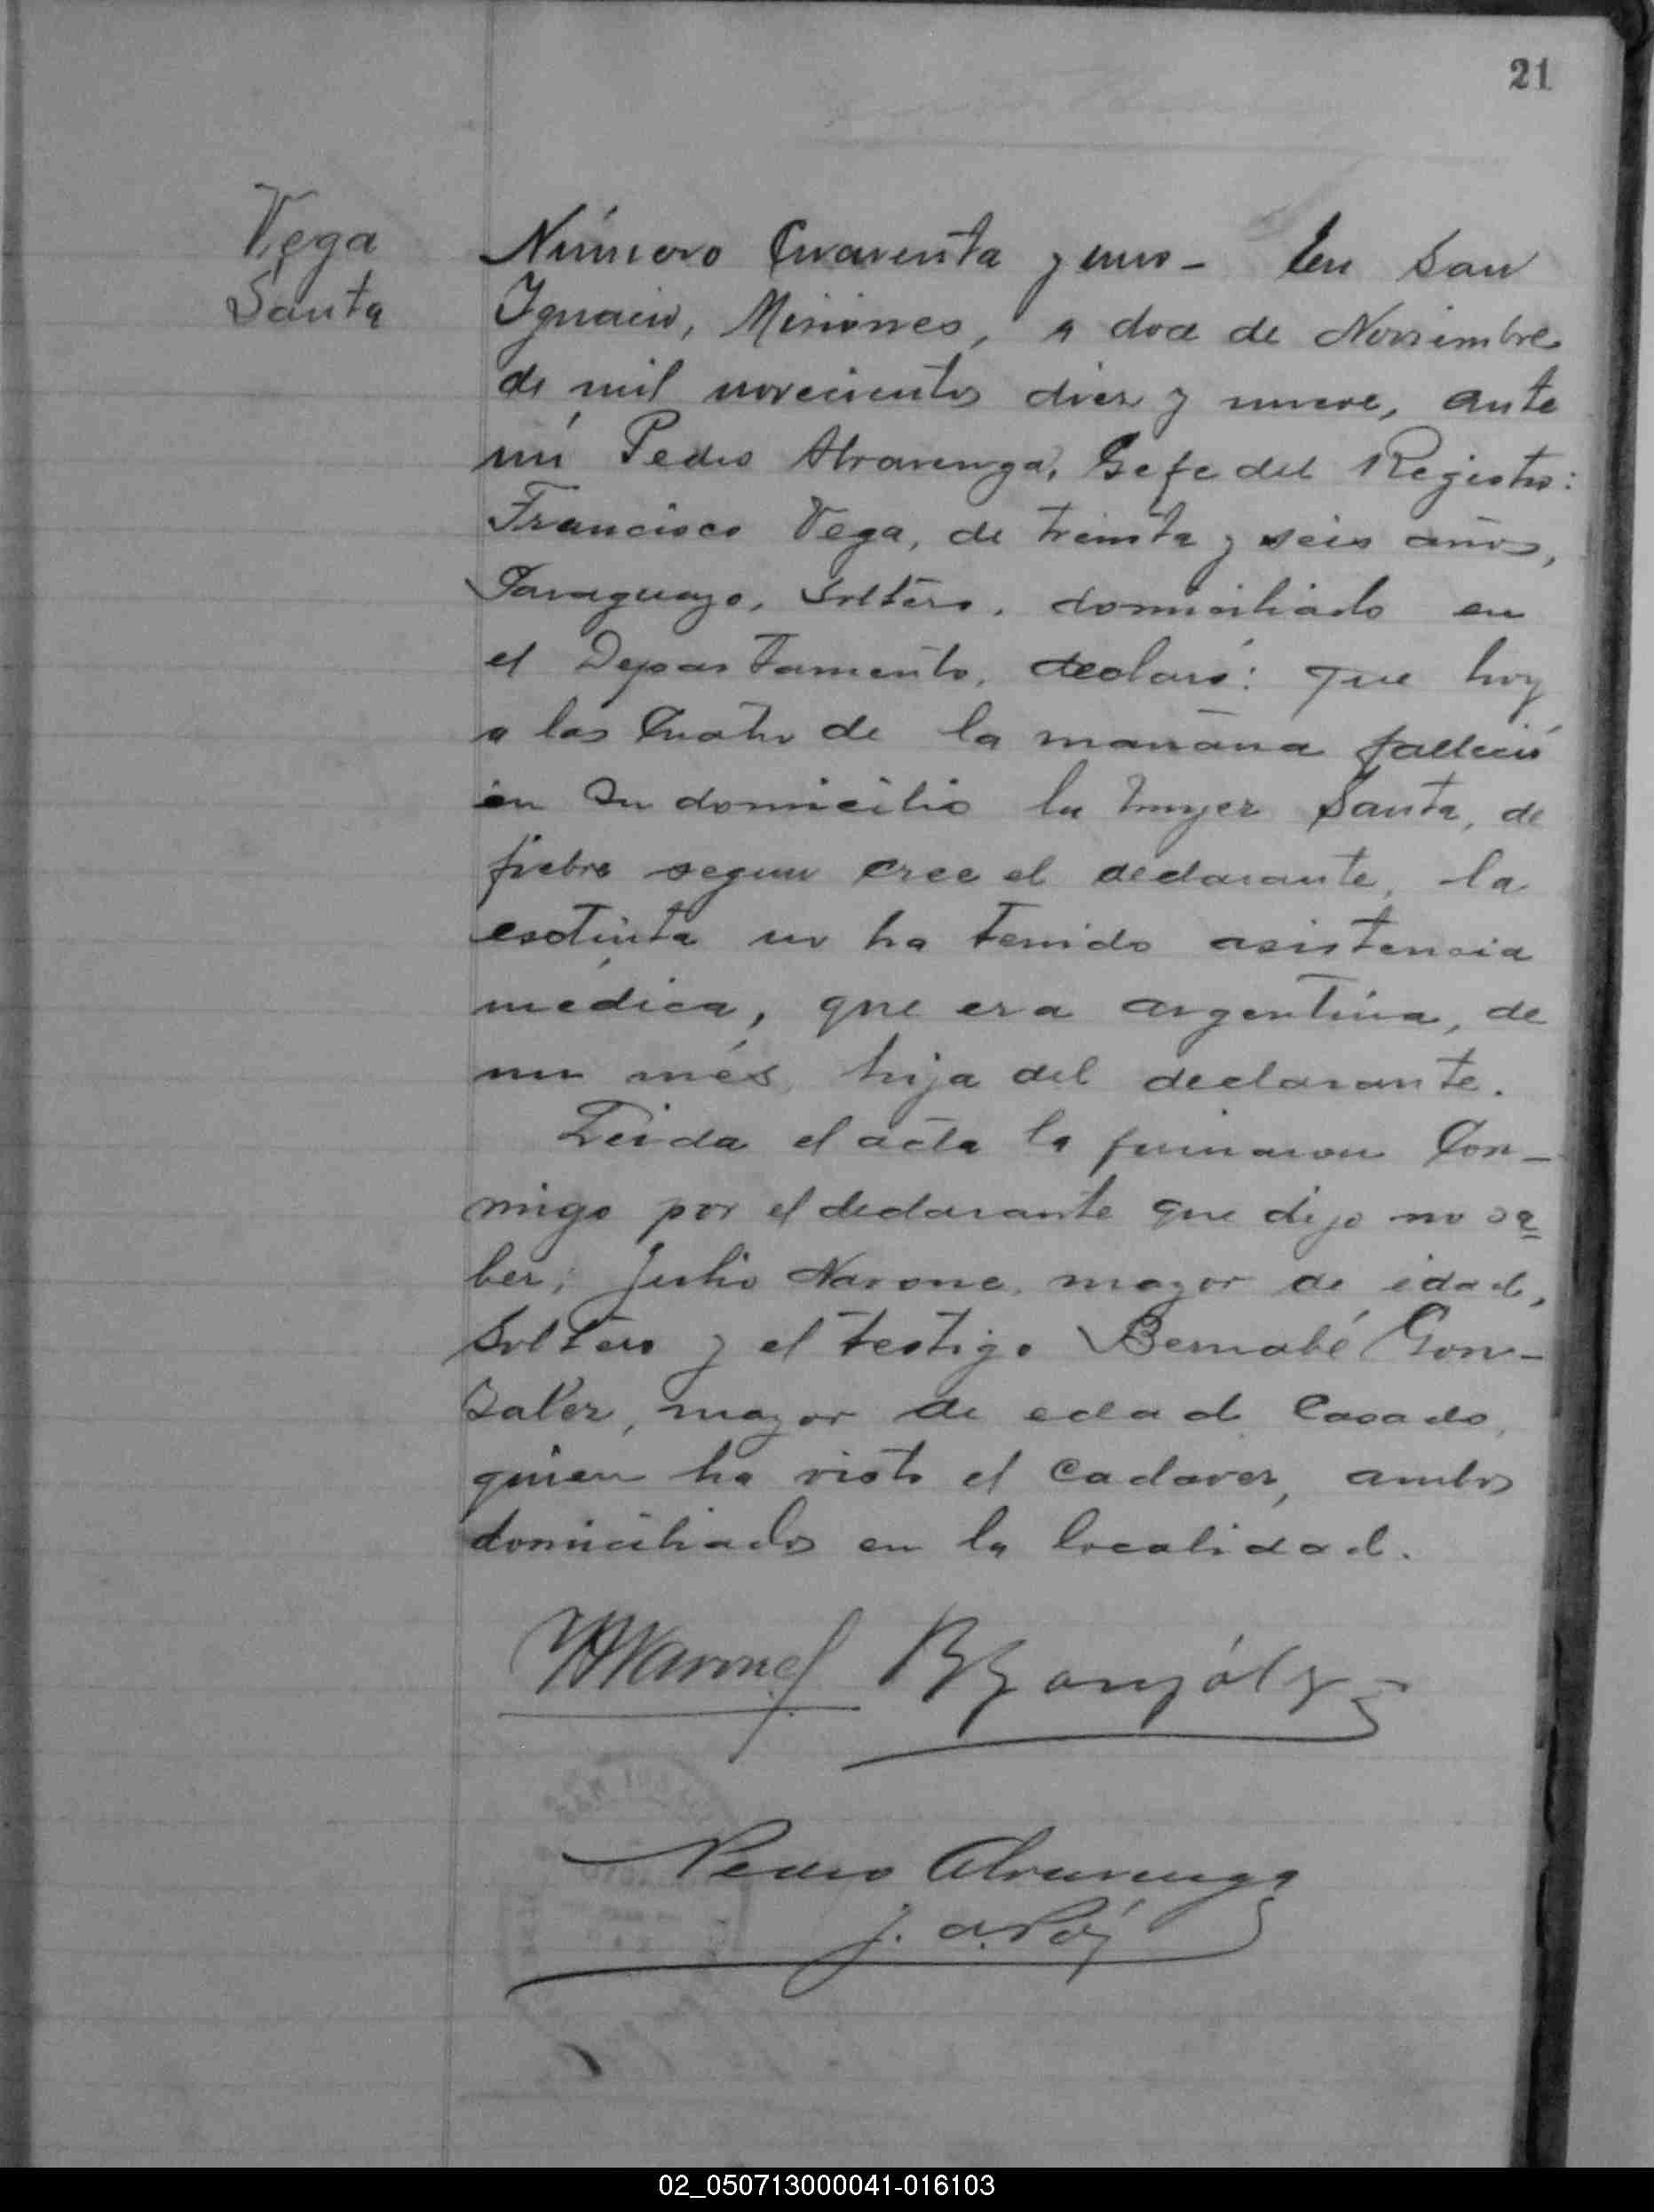 21
Vega
Santa
Número Cuarenta y uno - En San
Ignacio, Misiones, a doce de Noviembre
de mil novecientos diez y nueve, ante
mí Pedro Alvarenga, Gefe del Registro:
Francisco Vega, de treinta y seis años,
Paraguayo, soltero, domiciliado en
el Departamento, declaró: que hoy
a las Cuatro de la mañana falleció
en su domicilio la mujer Santa, de
fiebre segun cree el declarante, la
esctinta no ha tenido asistencia
médica, que era argentina, de
un més, hija del declarante.
Leida el acta la firmaron Con-
migo por el declarante que dijo no sa
ber; Julio Narone, mayor de edad,
Soltero y el testigo Bernabé Gon-
zalez, mayor de edad Casado,
quien ha visto el Cadaver, ambos
domiciliados en la localidad.
BGonzález
Pedro Alvarenga
02_050713000041-016103